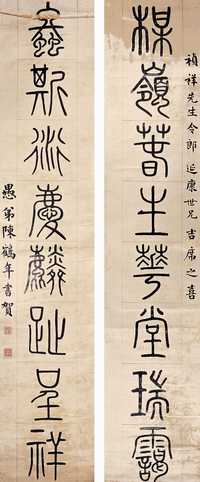 禎祥先生令郎延康世兄吉席之喜
楳嶺春生華堂瑞靄
螽斯衍慶麟趾呈祥
愚弟陳鶴年書賀